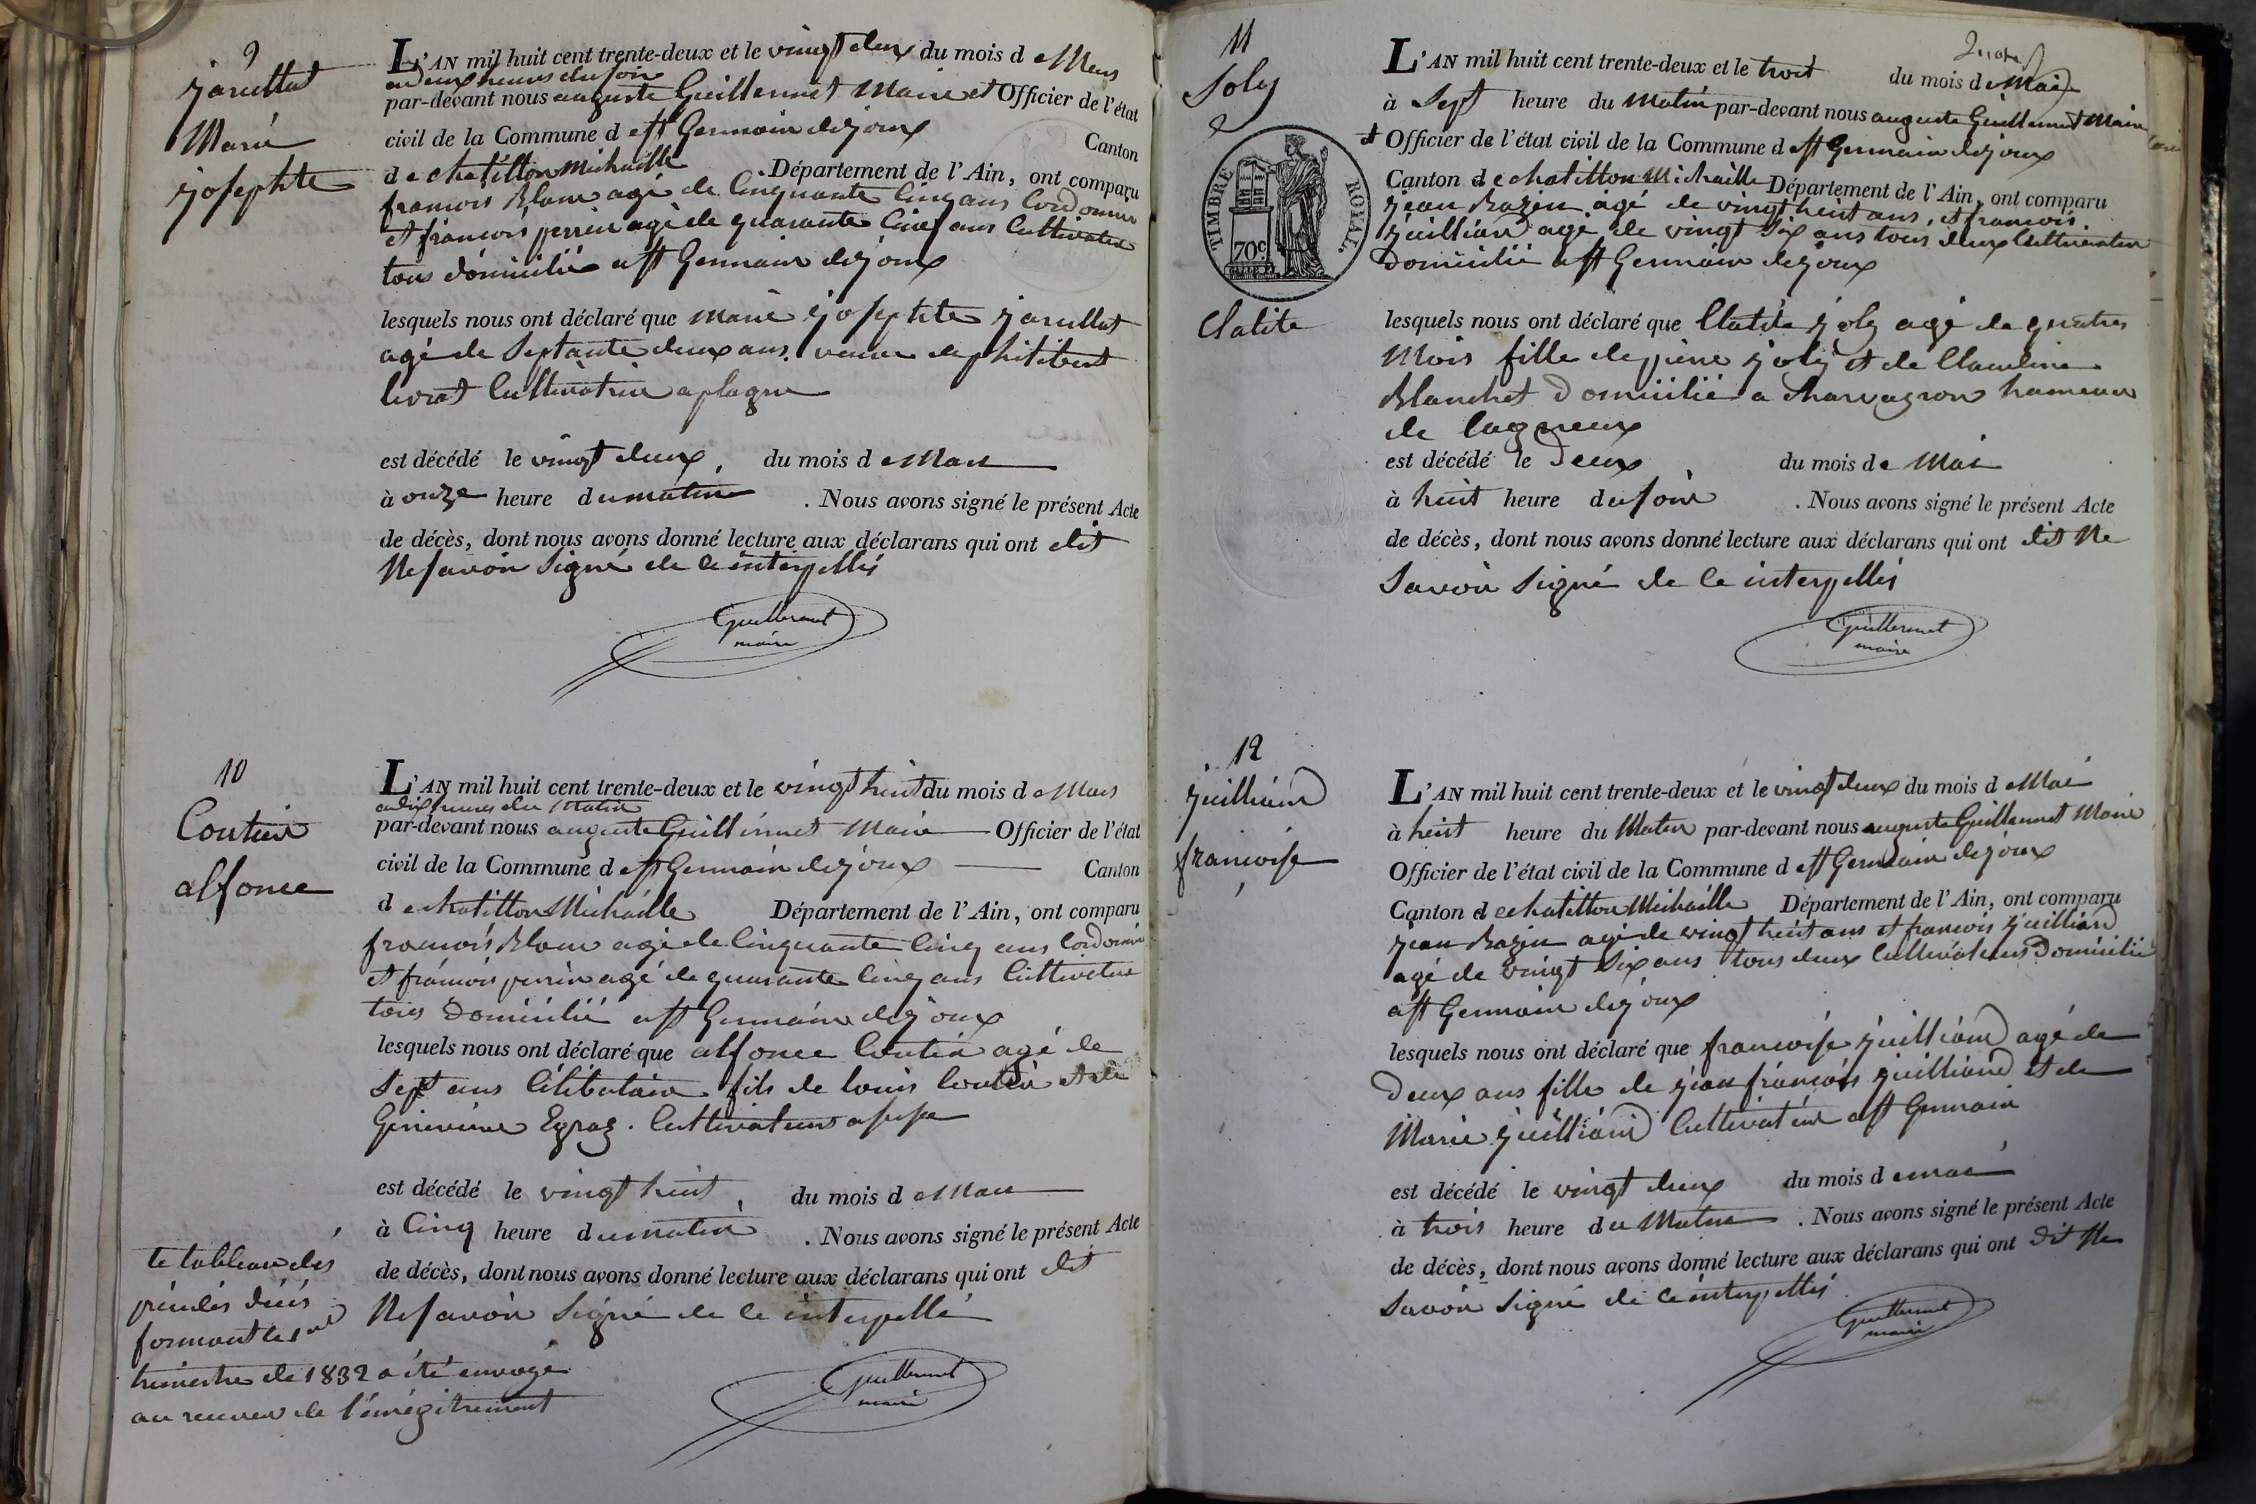 9
jarullat
Marie
josephte
L'AN mil huit cent trente-deux et le vingt deux du mois de Mars
a deux heures du soir
par-devant nous auguste Guillermet Maire et Officier de l'état
civil de la Commune de st Germain dejoux Canton
de chatillon Michaille . Département de l'Ain, ont comparu
francois Blanc agé de Cinquante Cinq ans Cordonnier
et francois perrin agé de quarante Cinq ans Cultivateur
tous domicilié a st Germain dejoux
lesquels nous ont déclaré que Marie josephte jarullat
agé de Septante deux ans. veuve de philibert
livrat Cultivatrice a plagne
est décédé le vingt deux, du mois de Mars
à onze heure du matin . Nous avons signé le présent Acte
de décès, dont nous avons donné lecture aux déclarans qui ont dit
Ne savoir Signé de ce interpellés
Guillermet
maire
10
Coutier
alfonce
L'AN mil huit cent trente-deux et le vingt huit du mois de Mars
a dix heures du Matin
par-devant nous auguste Guillermet Maire Officier de l'état
civil de la Commune de st Germain dejoux Canton
de chatillon Michaille Département de l'Ain, ont comparu
francois Blanc agé de Cinquante Cinq ans Cordonnier
et francois perrin agé de quarante Cinq ans Cultivateur
tous Domicilié a st Germain dejoux
lesquels nous ont déclaré que alfonce Coutier agé de
Sept ans Célibataire fils de louis Coutier et de
Genevieve Egraz. Cultivateurs a
est décédé le vingt huit, du mois de Mars
à Cinq heure du matin . Nous avons signé le présent Acte
de décès, dont nous avons donné lecture aux déclarans qui ont dit
Ne savoir Signé de ce interpellé
Guillermet
maire
le tableau des
décés
formant le
trimestre de 1832 a été envoyé
au receveur de l'enregitrement
11
Joly
TIMBRE ROYAL.
70c.
Clatite
L'AN mil huit cent trente-deux et le trois du mois de Mai
à Sept heure du Matin par-devant nous auguste Guillermet Maire
et Officier de l'état civil de la Commune de st Germain dejoux
Canton de chatillon Michaille Département de l'Ain, ont comparu
jean Bazin agé de vingt huit ans, et francois
juilliard agé de vingt Six ans tous deux Cultivateur
Domicilié a st Germain dejoux
lesquels nous ont déclaré que Clatite joly agé de quatres
Mois fille de pierre joly et de Claudine
Blanchet Domicilié a Charvagron hameau
de lagneux
est décédé le Deux du mois de Mai
à huit heure du soir . Nous avons signé le présent Acte
de décès, dont nous avons donné lecture aux déclarans qui ont dit Ne
Savoir Signé de ce interpellés
Guillermet
maire
12
juilliard
francoise
L'AN mil huit cent trente-deux et le vingt deux du mois de Mai
à huit heure du Matin par-devant nous auguste Guillermet Maire
Officier de l'état civil de la Commune de st Germain dejoux
Canton de chatillon Michaille Département de l'Ain, ont comparu
jean Bazin agé de vingt huit ans et francois juilliard
agé de vingt Six ans tous deux Cultivateurs Domicilié
a st Germain dejoux
lesquels nous ont déclaré que francoise juilliard agé de
Deux ans fille de jean francois juilliard et de
Marie juilliard Cultivateur a st Germain
est décédé le vingt deux du mois de mai
à trois heure du Matin . Nous avons signé le présent Acte
de décès, dont nous avons donné lecture aux déclarans qui ont dit Ne
Savoir Signé de ce interpellés
Guillermet
maire